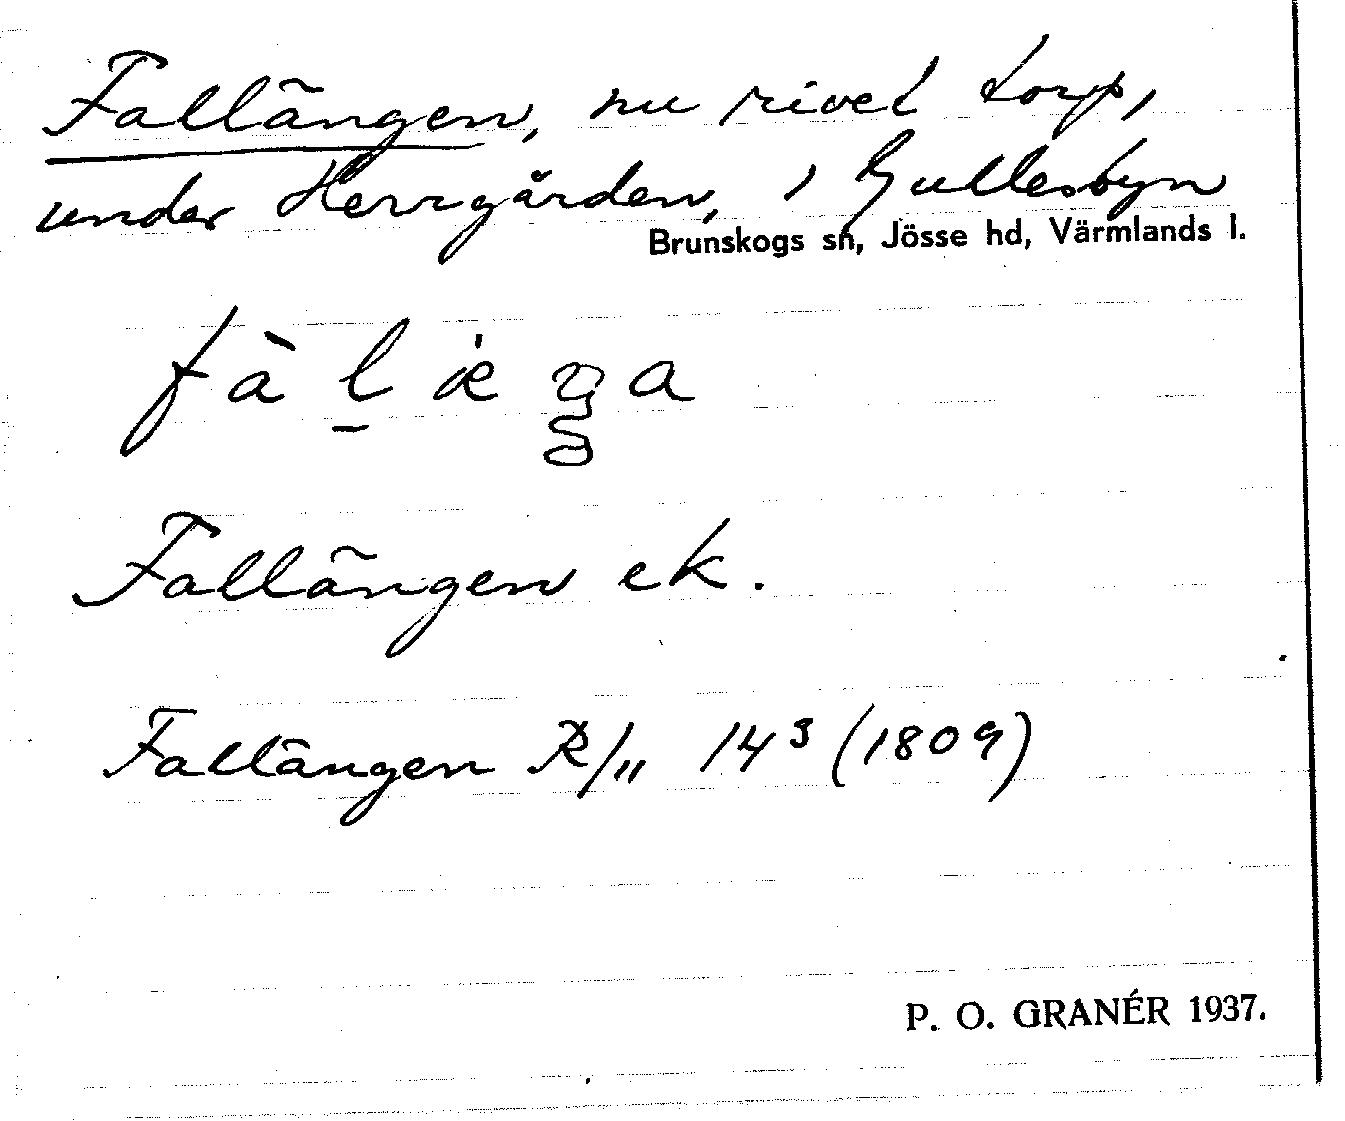 Fallängen, nu rivet torp,
under Herrgården, i Gullesbyn
Brunskogs sn, Jösse hd, Värmlands l.
Fallängen ek.
Fallängen R/" 14³ (1809)
P. O. GRANÉR 1937.